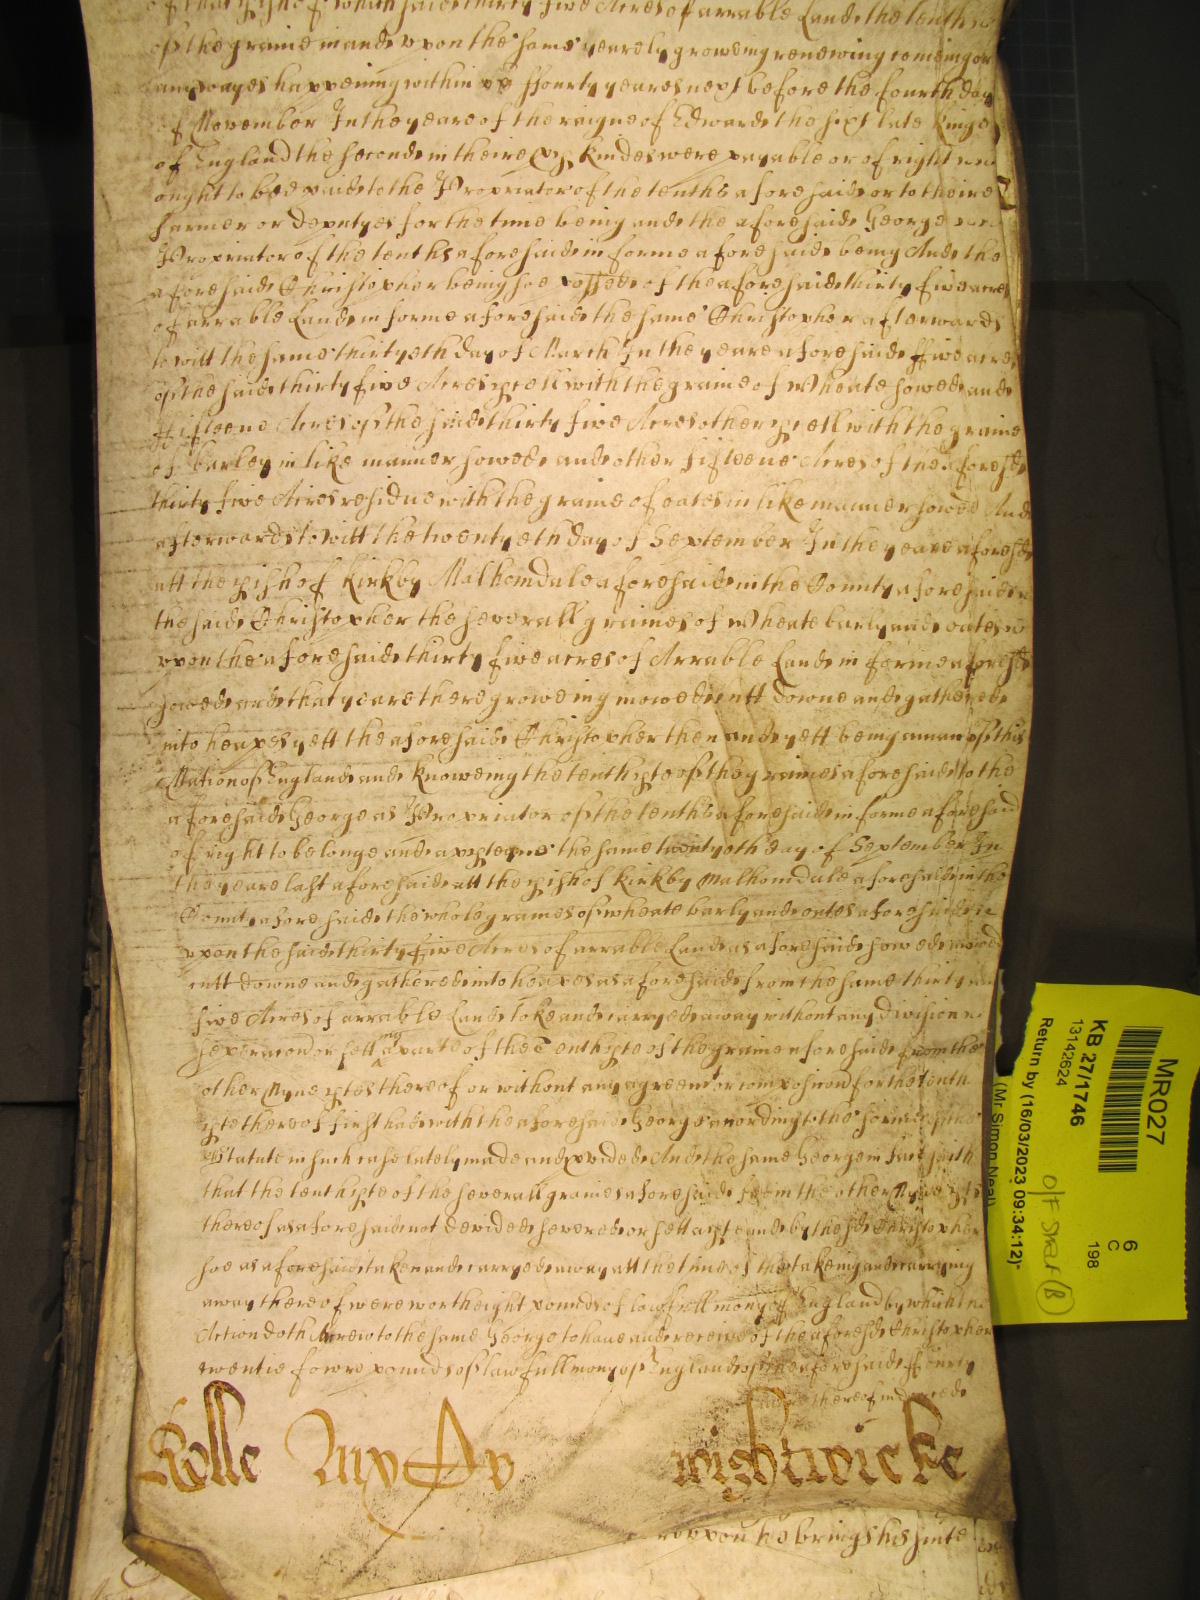 of that pish of which saide thirty five Acres of arrable Lande the tenths
of the graine in and vpon the same yearely groweing renewing comeing or
any wayes happening within ffourty yeares next before the fourth day
of November In the yeare of the raigne of Edwarde the sixt late Kinge
of England the seconde in theire pp kindes were payable or of right
ought to bee paide to the Proprietor of the tenths aforesaide or to theire
farmer or deputyes for the time being and the aforesaide George
Proprietor of the tenths aforesaide in forme aforesaide being And the
aforesaide Christopher being soe possessed of the aforesaide thirty five acres
of arrable Lande in forme aforesaide the same Christopher afterwards
to witt the same thirtyeth day of March In the yeare aforesaide ffive acres
of the saide thirty five Acres pcell with the graine of Wheate sowed and
fifteene Acres of the saide thirty five Acres other pcell with the graine
of barley in like manner sowed and other fifteene Acres of the aforesde
thirty five Acres residue with the graine of oates in like manner sowed And
afterwards to witt the twentyeth day of September In the yeare aforesde
att the pish of Kirkby Malhomdale aforesaide in the County aforesaide
the saide Christopher the severall graines of Wheate barly and oates
vpon the aforesaide thirty five acres of Arrable Lande in forme aforesde
sowed and that yeare there groweing mowed cutt downe and gathered
into heapes yett the aforesaide Christopher then and yett being a man of this
Nation of England and knoweing the tenth pte of the graines aforesaide to the
aforesaide George as Proprietor of the tenths aforesaide in forme aforesaid
of right to belonge and apperteyne the same twentyeth day of September In
the yeare last aforesaide att the pish of Kirkby Malhomdale aforesaide in the
County aforesaide the whole graines of wheate barly and oates aforesaide
vpon the saide thirty five Acres of arrable Lande as aforesaide sowed mowed
cutt downe and gathered into heapes as aforesaide from the same thirty and
five Acres of arrable Lande toke and carryed away without any division
severacon or setting aparte of the Tenth pte of the graine aforesaide from the
other Nyne ptes thereof or without any agreemt or composicon for the tenth
pte thereof first had with the aforesaide George according to the forme of the
Statute in such case lately made and pvided And the same George in fact saith
that the tenth pte of the severall graines aforesaide from the other Nyne ptes
thereof as aforesaide not devided severed or sett apte and by the sde Christopher
soe as aforesaide taken and carryed away att the time of the takeing and carrying
away thereof were worth eight pounds of lawfull mony of England by which
Action doth Acrew to the same George to have and receive of the aforesde Christopher
twentie fower pounds of lawfull mony of England of the aforesaide ffourty
thereof indeede
Rolle wightwicke
vpon he brings his suite
MR027
KB 27/1746
13142624
Return by (16/03/2023 09:34:12)
(Mr Simon Neal)
6
C
198
O/F Shelf (B)